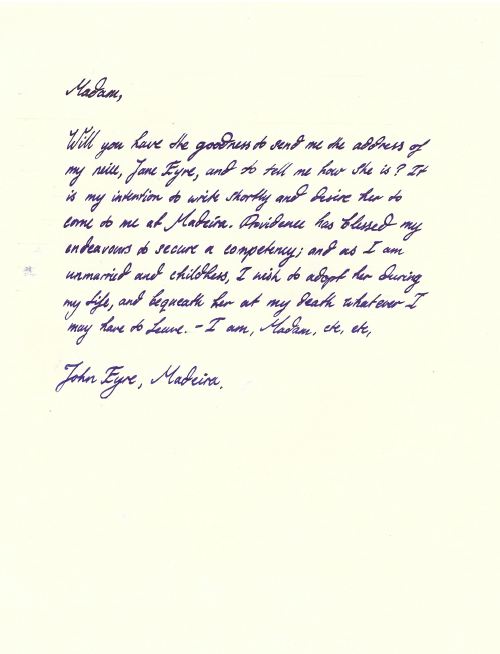 Madam,
Will you have the goodness to send me the address of
my neice, Jane Eyre, and to tell me how she is? It
is my intention to write shortly and desire her to
come to me at Madeira. Providence has blessed my
endeavours to secure a competency; and as I am
unmarried and childless, I wish to adopt her during
my life, and bequeath her at my death whatever I
may have to leave. - I am, Madam, etc, etc,
John Eyre, Madeira.